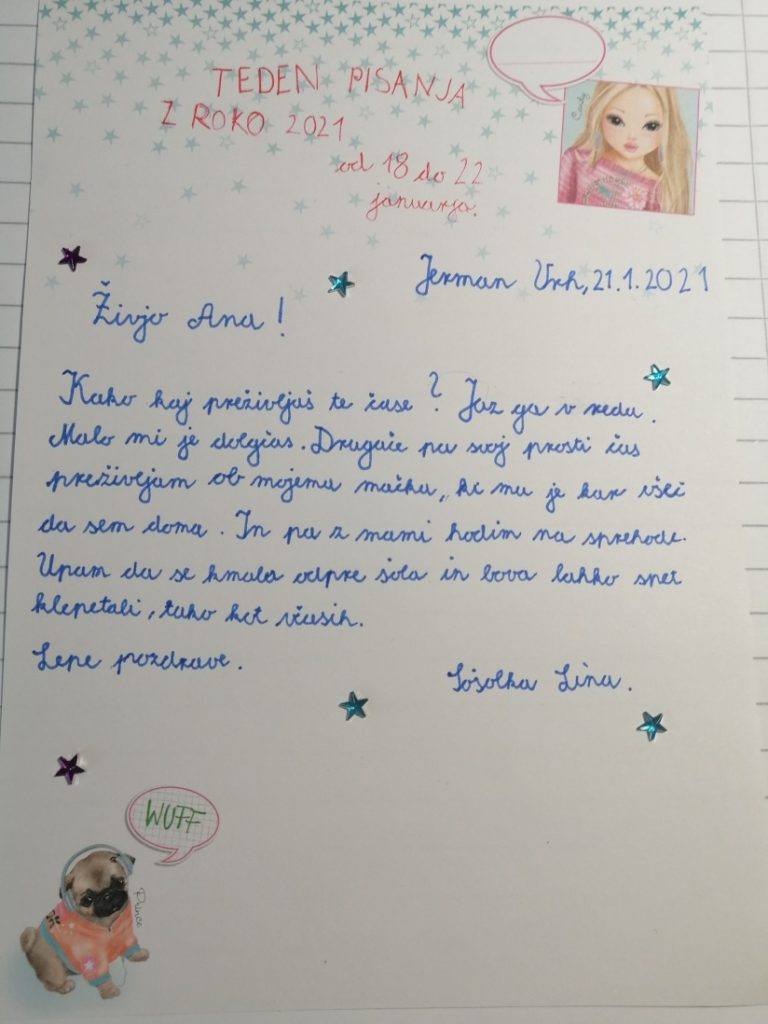 TEDEN PISANJA
Z ROKO 2021
od 18 do 22
januarja.
Candy
Jerman Vrh, 21.1.2021
Živjo Ana!
Kako kaj preživljaš te čase? Jaz ga v redu.
Malo mi je dolgčas. Drugače pa svoj prosti čas
preživljam ob mojemu mačku, ki mu je kar všeč
da sem doma. In pa z mami hodim na sprehode.
Upam da se kmalu odpre šola in bova lahko spet
klepetali, tako kot včasih.
Lepe pozdrave.
Sošolka Lina.
WUFF
Prince